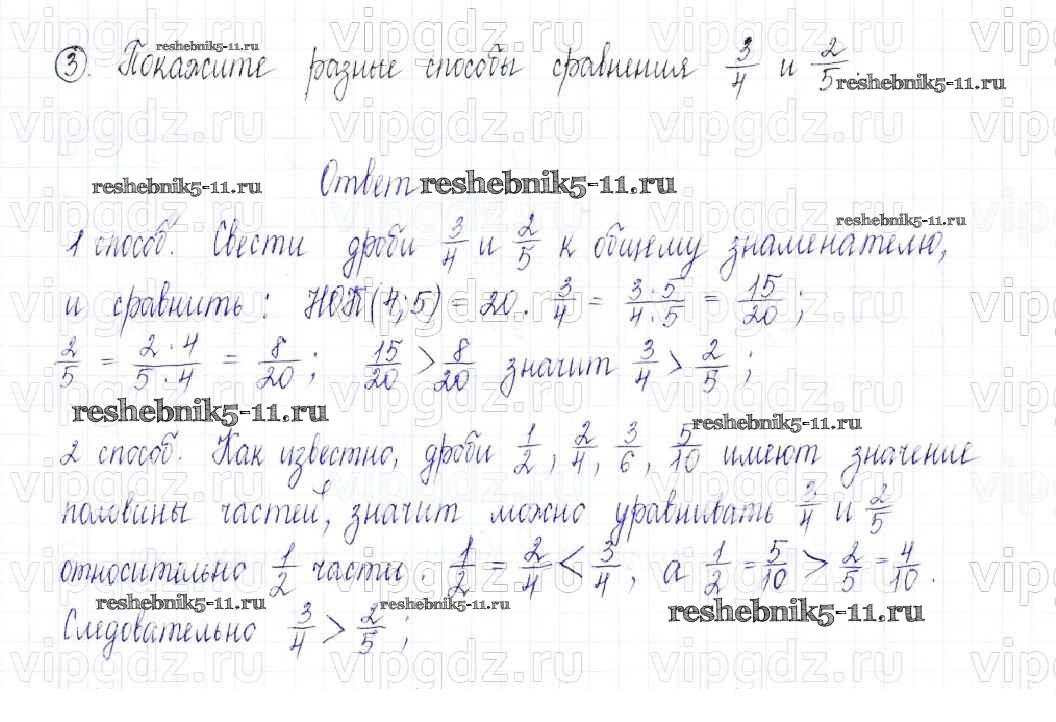 3. Покажите разные способы сравнения 3/4 и 2/5.
Ответ
1 способ. Свести дроби 3/4 и 2/5 к общему знаменателю,
и сравнить: НОК(4;5) = 20. 3/4 = 3·5/4·5 = 15/20;
2/5 = 2·4/5·4 = 8/20; 15/20 > 8/20 значит 3/4 > 2/5;
2 способ. Как известно, дроби 1/2, 2/4, 3/6, 5/10 имеют значение
половины частей, значит можно уравнивать 3/4 и 2/5
относительно 1/2 части. 1/2 = 2/4 < 3/4, а 1/2 = 5/10 > 2/5 = 4/10.
Следовательно 3/4 > 2/5;
reshebnik5-11.ru
vipgdz.ru